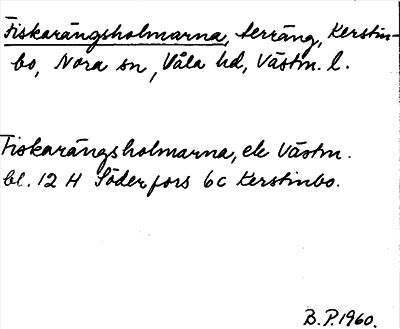 Fiskarängsholmarna, terräng, Kerstin-
bo, Nora sn, Våla hd, Västm. l.
Fiskarängsholmarna, ek Västm.
bl. 12 H Söderfors 6c Kerstinbo.
B. P. 1960.